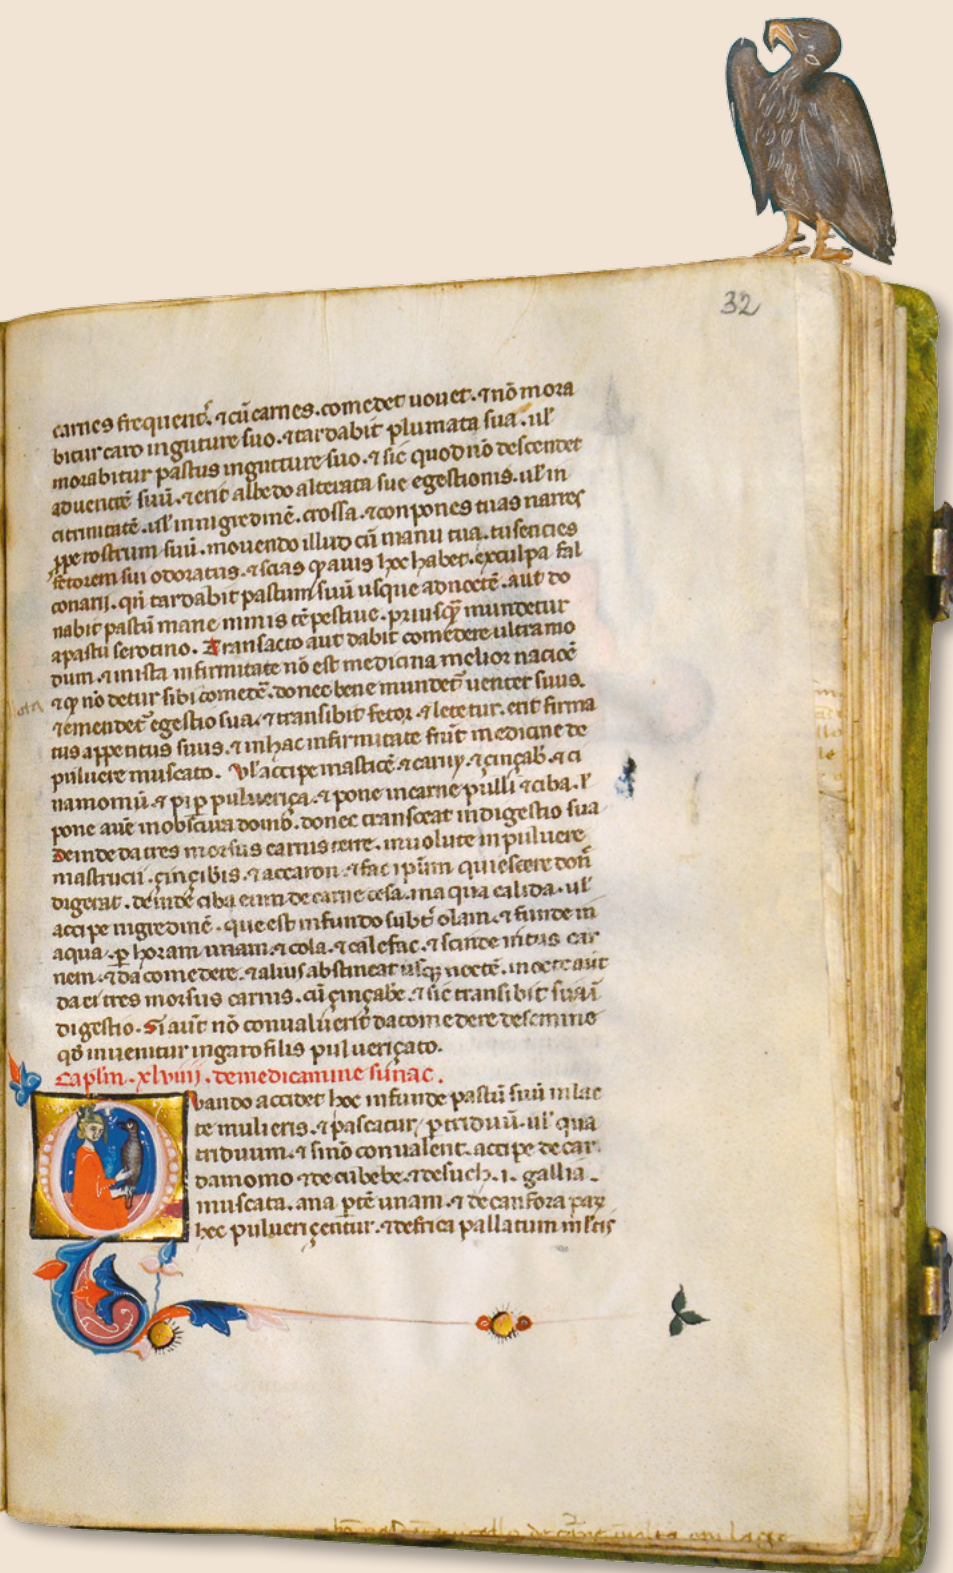 32
carnes frequent̃. ⁊ cũ carnes. comedet uouet. ⁊ nõ mora
bitur caro in guture suo. ⁊ tardabit plumata sua. ul̃
morabitur pastus in gutture suo. ⁊ sic quod nõ descendet
ad uentrẽ suũ. ⁊ erit albedo alterata sue egestionis. ul̃ in
citrinitatẽ. ul̃ in nigredinẽ. crossa. ⁊ con pones tuas nares
ꝓpe rostrum suũ. mouendo illud cũ manu tua. tu sencies
fetorem sui odoratus. ⁊ scias ꝙ auis hoc habet. ex culpa fal
conarij. qñ tardabit pastum suũ usque ad noctẽ. aut do
nabit pastũ mane nimis tẽpestiue. priusꝙ̃ mundetur
a pastu serotino. Transacto aut dabit comedere ultra mo
dum. ⁊ in ista infirmitate nõ est medicina melior nacioẽ
⁊ ꝙ nõ detur sibi comedẽ. donec bene mundet̃ uenter suus.
⁊ emendet̃ egestio sua. ⁊ transibit fetor. ⁊ letetur. erit firma
tus appetitus suus. ⁊ in hac infirmitate fiũt medicine de
puluere muscato. Vl̃ accipe masticẽ. ⁊ caruy. ⁊ çinçab̃. ⁊ ci
namomũ. ⁊ pip̃ pulueriça. ⁊ pone in carne pulli ⁊ ciba. l̃
pone auẽ in obscura domo. donec transeat indigestio sua
Deinde da tres morsus carnis terre. inuolute in puluere
mastrucii. çinçibis. ⁊ accaron. ⁊ fac ip̃um quiescere doñ
digerat. deinde ciba eum de carne cesa. in aqua calida. ul̃
accipe nigredinẽ. que est in fundo subt̃ olam. ⁊ funde in
aqua. ꝑ horam unam. ⁊ cola. ⁊ calefac. ⁊ scinde intus car
nem. ⁊ da comedere. ⁊ alius abstineat usqꝫ noctẽ. in nocte aũt
da ei tres morsus carnis. cũ çinçabe. ⁊ sic transibit sua ĩ
digestio. Si aũt nõ conualuerit da comedere de semine
qđ inuenitur in garofilis puluericato.
Cap̃lm. xlviiij. de medicamine sunac.
Quando accidet hoc infunde pastũ suũ in lac
te mulieris. ⁊ pascatur. ꝑ triduũ. ul̃ qua
triduum. ⁊ si nõ conualent. accipe de car
damomo ⁊ de cubebe. ⁊ de such. .i. gallia.
muscata. ana ꝑtẽ unam. ⁊ de canfora paꝝ
hec puluericentur. ⁊ defrica pallatum